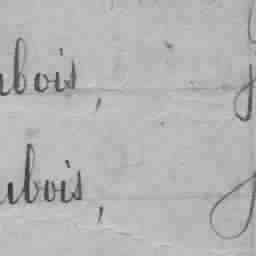 ubois,
ubois,